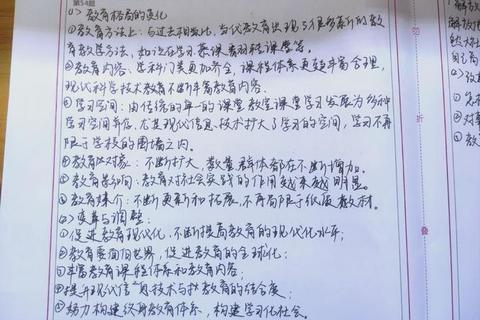 第54题
(1) 教育格局的变化
①教育方法上:与过去相比,当代教育出现了很多新的教
育教学方法,如泛在学习、慕课、翻转课堂等。
②教育内容:学科门类更加齐全,课程体系更趋丰富合理,
现代科学技术教育不断丰富教育内容。
③学习空间:由传统的单一的课堂教学课堂学习发展为多种
学习空间并存,尤其现代信息技术扩大了学习的空间,学习不再
限于学校的围墙之内。
④教育对象:不断扩大,数量、群体都在不断增加。
⑤教育 :教育对社会实践的作用越来越明显。
⑥教育媒介:不断更新和拓展,不再局限于纸质教材。
(2) 变革与调整:
①促进教育现代化,不断提高教育的现代化水平;
②教育要面向世界,促进教育的全球化;
③丰富教育课程体系和教育内容;
④提升现代信息技术与 教育的结合度;
⑤努力构建终身教育体系,构建学习化社会。
折
叠